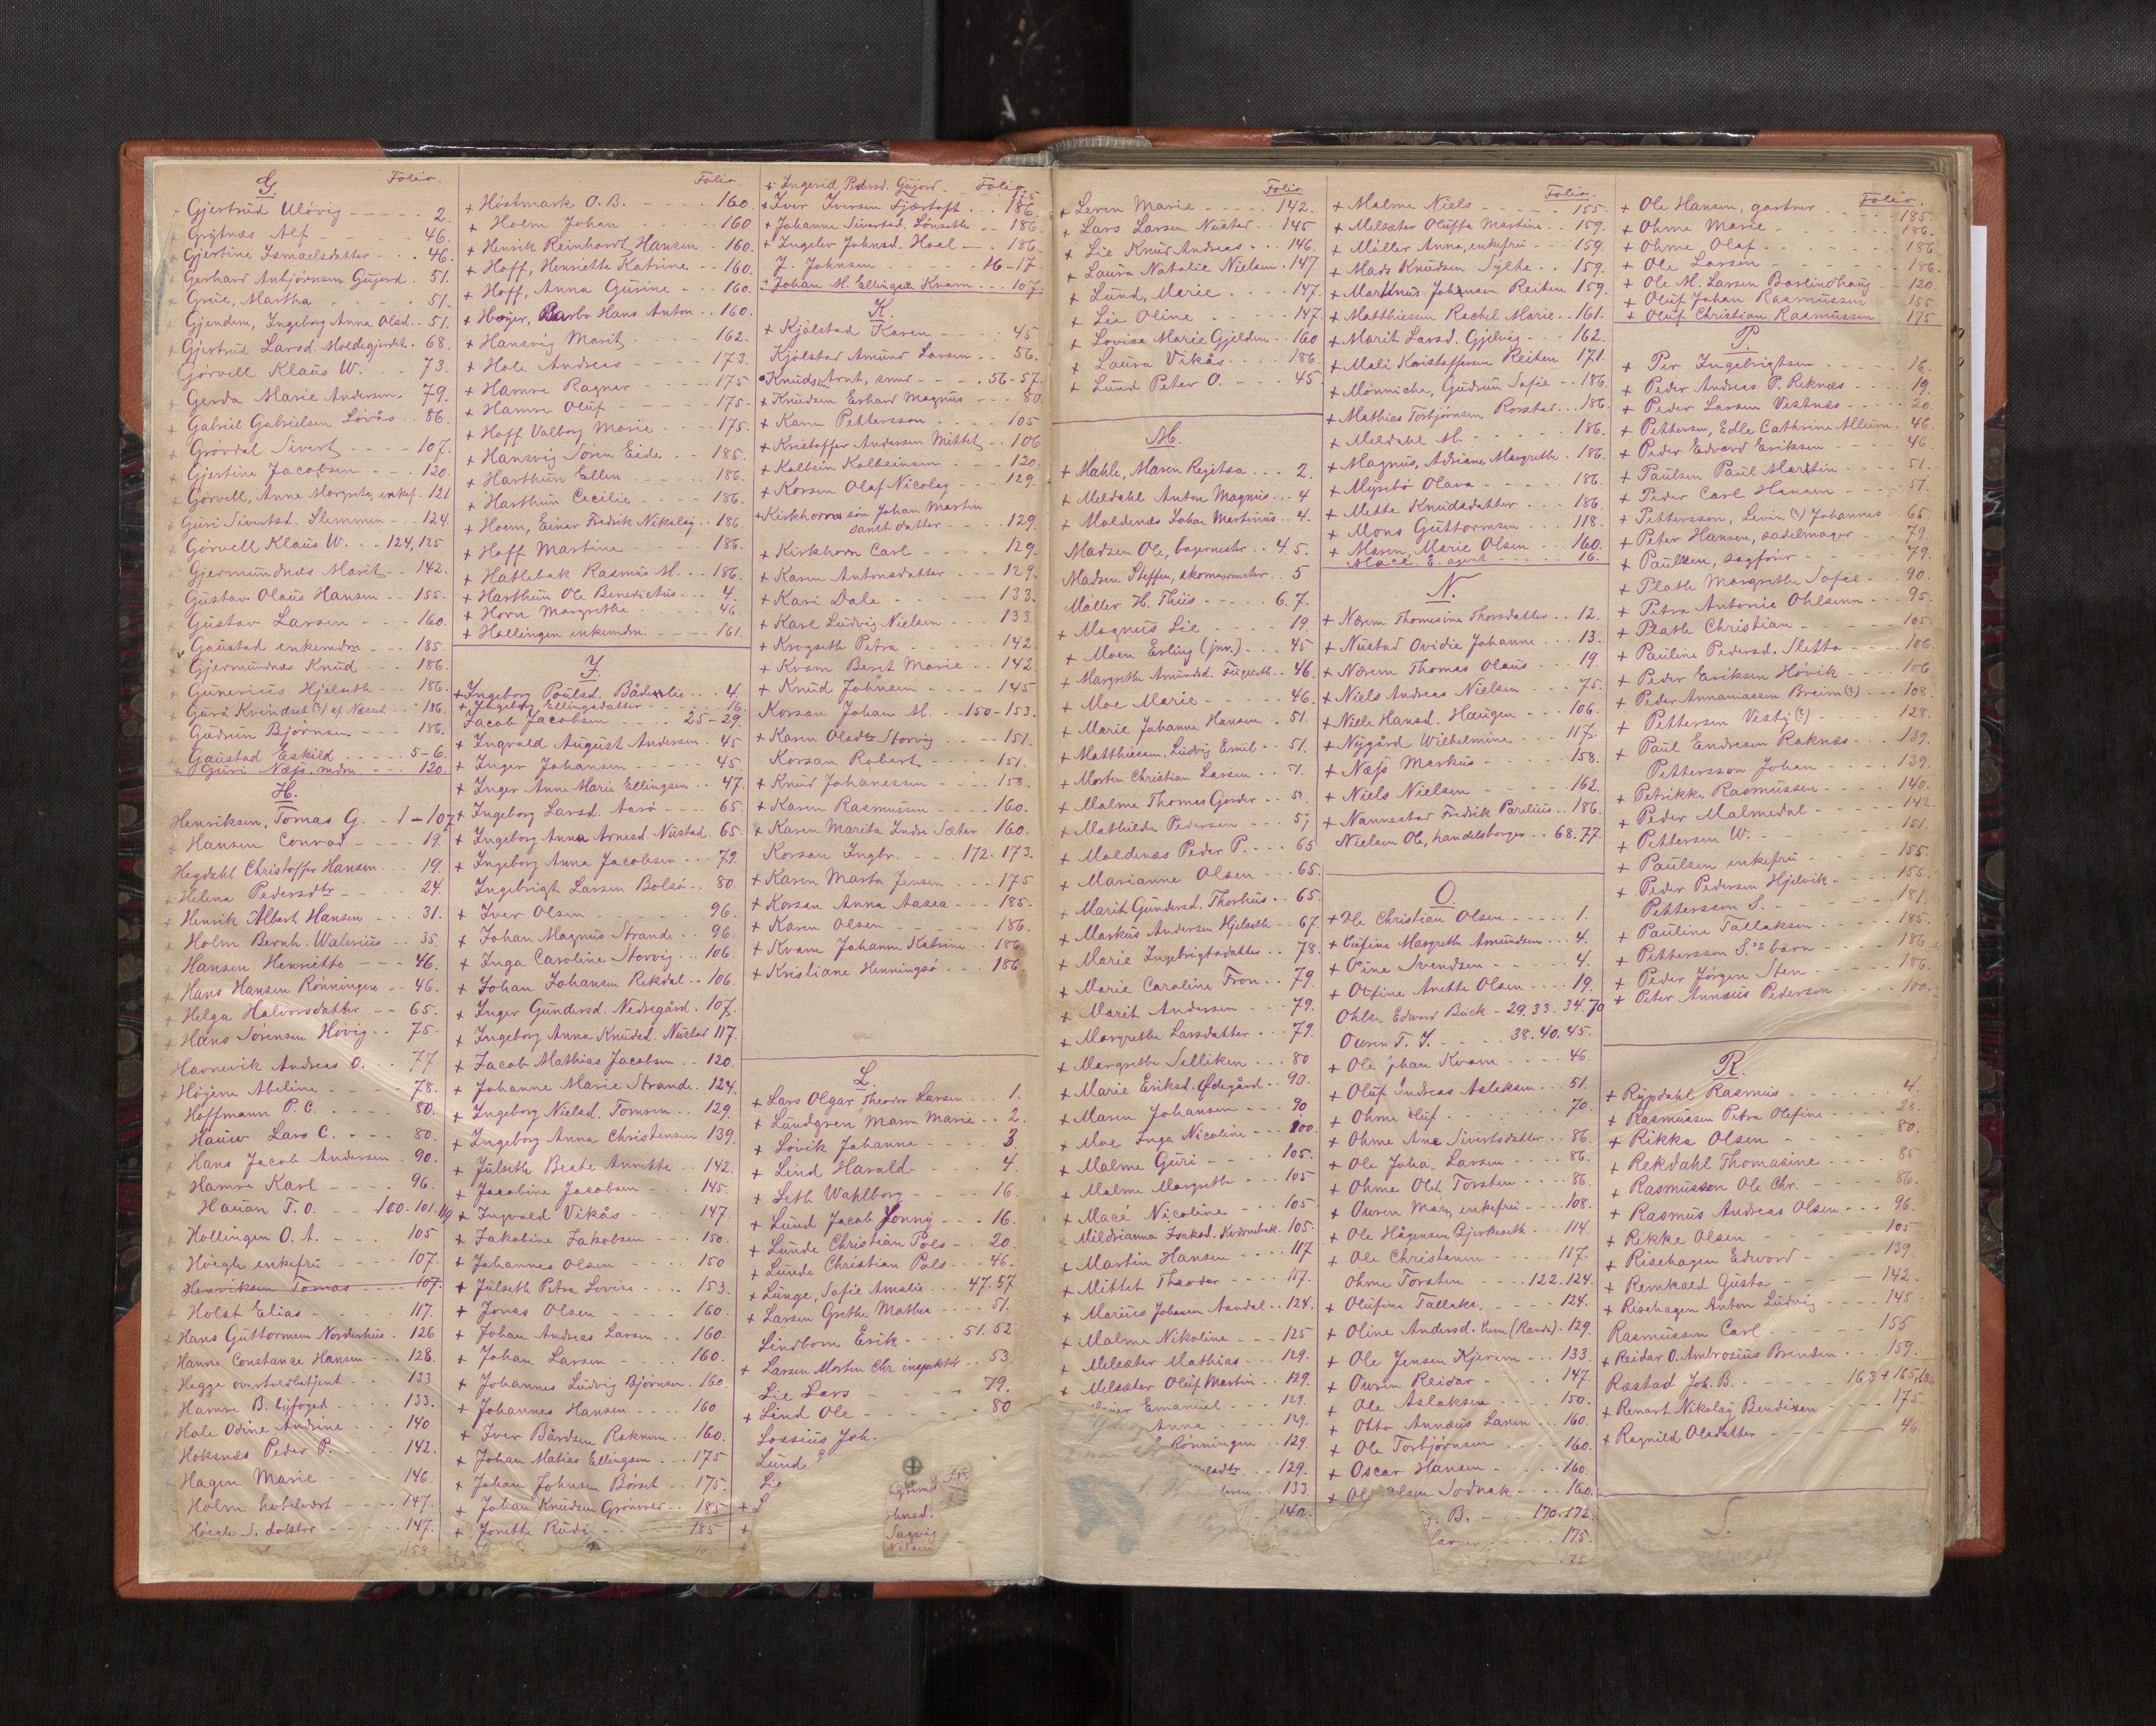 G. Folio.
Gjertrud Ulövig - - - - - 2.
+ Grytnæs Alf - - - - 46.
+ Gjertine Ismaelsdatter - - 46.
+ Gerhard Anbjörnsen Gujord . 51.
+ Grüe, Martha - - - - 51.
+ Gjendem, Ingeborg Anna Olsd. . 51.
+ Gjertrud Larsd. Moldegjerdet . 68.
Görvell Klaus W. . . 73.
+ Gerda Marie Andersen . 79.
+ Gabriel Gabrielsen Lövås . . 86.
+ Grördal Sivert - - - - 107.
+ Gjertine Jacobsen - - - 120.
+ Görvell, Anne Margrete, enkef. . 121
+ Guri Sivertsd. Slemmen - . . 124.
+ Görvell Klaus W. . . 124, 125
+ Gjermundnæs Marit - - 142.
+ Gustav Olaus Hansen - - 155.
+ Gustav Larsen - - - 160.
+ Gaustad enkemdm - - - 185
+ Gjermundnæs Knud - - - 186.
+ Gunerius Hjelseth - - - 186.
+ Gurö Kvindset (?) af Næsset . . 186.
+ Gudrun Björnsen - - - 186.
Gaustad Eskild . . . . . 5-6.
+ Guri Næss. mdm - - - 120.
H.
Henriksen, Tomas G. - 1-107
+ Hansen Conrad - - - - 19.
Hegdahl Christoffer Hansen . . . 19.
+ Helena Pedersdtr - - - - 24.
+ Henrik Albert Hansen - - - 31.
+ Holm Bernh. Walerius - - 35.
+ Hansen Henriette - - - 46.
+ Hans Hansen Rönningen - - 46.
+ Helga Halvorsdatter - - 65.
+ Hans Sörensen Hövig - - 75.
Havnevik Andreas O. . . . 77
+ Höyem Abeline - - - - - 78.
+ Hoffmann P. C. - - - - - 80.
+ Hauw Lars C. - - - - 80.
+ Hans Jacob Andersen . 90.
+ Hamre Karl - - - - 96.
Hauan T. O. - - 100. 101. 119
+ Hollingen O. A. - - - 105
+ Höegh enkefru - - - - 107.
Henriksen Tomas - - - - 107.
+ Holst Elias - - - - - 117.
+ Hans Guttormsen Norderhus . 126
+ Hanna Constance Hansen - - - 128.
+ Hegge overtoldbetjent - - - 133
+ Hamre B. byfoged - - - - 133.
+ Hole Odine Andrine - - - 140
+ Hoksnæs Peder P. - - - 142.
+ Hagen Marie - - - - 146.
+ Holm hotelvert - - - - 147.
+ Höegh S. doktor - - - - - 147.
Folio.
+ Höstmark O. B. - - - - 160.
+ Holm Johan - - - - 160
+ Henrik Reinhardt Hansen . 160.
+ Hoff, Henriette Katrine - - 160.
+ Hoff, Anna Gusine - - - 160.
+ Høyer, Barbo Hans Anton . . 160.
+ Hansvig Marit - - - - 162.
+ Hole Andreas - - - - 173.
+ Hamre Ragnar - - - - - 175
+ Hamre Oluf - - - - - 175.
+ Hoff Valborg Marie - - - - 175.
+ Hansvig Sören Eide - - 185.
+ Harthun Ellen - - - - - 186.
+ Harthun Cecilie - - - - 186.
+ Hoem, Einar Fredrik Nikolay . . 186.
+ Hoff Martine - - - - 186.
+ Hatlebak Rasmus M. - - - 186.
+ Harthun Ole Benedictus . . . 4.
+ Horn Margrethe - - - - 46.
+ Hollingen enkemdm. - - - - 161.
I.
+ Ingeborg Poulsd. Bådeslie . . . 4.
+ Ingeborg Ellingsdatter - - - - 16.
Jacob Jacobsen - - - - 25-29.
+ Ingvald August Andersen . 45
+ Inger Johansen - - - - - 45
+ Inger Anne Marie Ellingsen . . 47.
+ Ingeborg Larsd. Aarö - - - - 65.
+ Ingeborg Anna Arnesd. Nustad . 65.
+ Ingeborg Anna Jacobsen - - - 79.
Ingebrigt Larsen Bolsö - - 80.
+ Iver Olsen - - - - - 96.
+ Johan Magnus Strande . . 96.
+ Inga Caroline Storvig - - - 106
+ Johan Johansen Rekdal . . 106.
+ Inger Gundersd. Nedregård . 107.
+ Ingeborg Anna Knudsd. Nustad 117.
+ Jacob Mathias Jacobsen - - 120.
+ Johanne Marie Strande . 124.
+ Ingeborg Nielsd. Tomren . . 129.
+ Ingeborg Anna Christensen 139.
+ Julseth Beate Annette . . 142.
+ Jacobine Jacobsen - - - 145.
+ Ingvald Vikås - - - - - 147.
+ Jakobine Jakobsen - - - 150.
+ Johannes Olsen - - - - - 150
+ Julseth Petra Lovise - - - - 153.
+ Jonas Olsen - - - - - 160.
+ Johan Andreas Larsen . . 160.
+ Johan Larsen - - - - 160.
+ Johannes Ludvig Björnsen . 160.
+ Johannes Hansen - - - - 160
+ Iver Bårdsen Roknem . . . 160.
+ Johan Matias Ellingsen . . . 175
+ Johan Johnsen Börset - - - 175.
+ Johan Knudsen Grønvoer . . 185
+ Jonette Rudi - - - - 185
+ Ingerid Pedersd. Gujord - Folio. 125
+ Iver Iversen Fjærtoft . . . 186.
+ Johanne Sivertsd. Lönseth . . 186.
+ Ingelev Johnsd. Hoel - - . 186.
J. Johnsen - - - - - 16-17.
+ Johan M. Ellingsen Kvam . . . 107
K.
+ Kjölstad Karen - - - - 45
Kjölstad Amund Larsen . . 56.
Knudsen Arnt, smed - - . 56-57.
+ Knudsen Erhard Magnus - - - 80.
+ Karen Pettersson - - - - - 105
+ Kristoffer Andersen Mittet . . 106
+ Kolbein Kolbeinsen - - - - 120.
+ Korsen Olaf Nicolay - - - 129
+ Kirkhorns sön Johan Martin
samt datter - - - - - 129.
+ Kirkhorn Carl - - - - 129.
+ Karen Antonsdatter - - - 129.
+ Kari Dale - - - - - 133.
+ Karl Ludvig Nielsen - - - 133.
+ Krogseth Petra - - - - 142.
+ Kvam Beret Marie - - 142
+ Knud Johnsen - - - - 145
Korsan Johan M. - - 150-153.
+ Karen Olsdtr Storvig - - - - 151.
Korsan Robert - - - - 151.
+ Knud Johanessen - - - - 158.
+ Karen Rasmussen - - - - 160.
+ Karen Marita Indre Sæter . 160.
Korsan Ingbr. - - - 172-173.
+ Karen Marta Jensen - - - 175
+ Korsan Anna Aasea - - - 185.
+ Karen Olsen - - - - - - 186.
+ Kvam Johanne Katrine . . 186
+ Kristiane Henningsö - - - 186.
L.
+ Lars Olgar Theodor Larsen . . . 1.
+ Lundgren Maren Marie . . 2.
+ Lövik Johanne - - - - 3.
+ Lind Harald - - - - 4.
+ Leth Wahlborg - - - - 16.
+ Lund Jacob Jonny - - - 16.
+ Lunde Christian Pols - . 20.
+ Lunde Christian Pols - - . 46.
+ Lunge, Sofie Amalie . . . 47.57
+ Larsen Grethe Mathea - - - - 51.
Lindbom Erik . . . . 51.52
+ Larsen Morten Chr. inspektör . . 53.
Lie Lars - - - - - 79.
+ Lind Ole - - - - - - 80
Lossius Joh.
Lund
Lie
+ L
ohnsd.
Sagvig
Nilsen
Folio
+ Leren Marie - - - - - 142.
+ Lars Larsen Nustad . . 145
+ Lie Knud Andreas . . . 146.
+ Laura Natalie Nielsen . 147
+ Lund, Marie - - - - 147.
+ Lie Oline - - - - - 147.
+ Lovise Marie Gjelden . . 160
+ Laura Vikås - - - - 186.
+ Lund Peter O. - - - 45
M.
+ Mahle, Maren Regitza . . . 2.
+ Meldahl Anton Magnus . . . 4
+ Moldenæs Johan Martinus . . 4.
Madsen Ole, bagermestr . . 4.5.
Madsen Steffen, skomagermester . . 5
Möller H. Thiis - - - - 6.7.
+ Magnus Lie - - - - - 19.
+ Moen Erling (jnr.) - - - 45
+ Margrethe Amundsd. Fugseth . . 46.
+ Moe Marie - - - - - 46.
+ Marie Johanne Hansen . . 51.
+ Matthiesen, Ludvig Emil . . 51.
+ Morten Christian Larsen . . 51.
+ Malme Thomas Gerder - - 51
+ Mathilde Pedersen - - - 57
+ Moldenæs Peder P. - - - 65
+ Marianne Olsen - - - 65.
+ Marit Gundersd. Thorhus . . 65.
+ Markus Andersen Hjelseth - . 67.
+ Marie Ingebrigtsdatter - - 78.
+ Marie Caroline Tron . . 79.
+ Marit Andersen - - - 79.
+ Margrethe Larsdatter . . . 79.
+ Margrethe Selliken - - - - 80
+ Marie Eriksd. Ødegård . . 90.
+ Maren Johansen - - - 90
+ Moe Inga Nicoline - - - 100.
+ Malme Guri - - - - 105.
+ Malme Margrethe - - - 105
+ Macé Nicoline - - - - 105.
+ Mildrianna Isaksd. Kvernebak . 105.
+ Martin Hansen - - - - 117
+ Mittet Theodor - - - - 117.
+ Marius Johansen Aandal . . 124.
+ Malme Nikoline - - - 125
+ Melsæter Mathias - - - 129.
+ Melsæter Oluf Martin - - 129.
Emanuel - - - 129.
Anna - - - 129.
Rönningen . . 129.
129.
133
140.
Folio.
+ Malme Niels - - - - - 155.
+ Melsæter Oluffa Martine . . 159.
+ Möller Anna, enkefru - - 159.
+ Mads Knudsen Sylte . . 159.
+ Martinus Johnsen Reiten 159.
+ Matthiesen Rachel Marie . . 161.
+ Marit Larsd. Gjelvig - - - 162.
+ Mali Kristoffersen Reiten 171.
+ Mönniche, Gudrun Sofie - - 186.
+ Mathias Torbjörnsen Rorstad . . . 186.
+ Meldahl M. - - - - - - 186.
+ Magnus, Adriane Margrethe . 186.
+ Myrebö Olava - - - - - 186.
+ Mette Knudsdatter - - - 186.
+ Mons Guttormsen - - - 118.
+ Maren, Marie Olsen . . . 160.
Macé. E. agent - - - - - 16.
N.
+ Nærem Thomesine Thorsdatter . . 12.
+ Nustad Ovidie Johanne . . . 13.
+ Nærem Thomas Olaus . . . 19.
+ Niels Andreas Nielsen - - - 75.
+ Niels Hansd. Haugen - - - 106.
+ Nygård Wilhelmine - - - - 117.
+ Næss Markus - - - - - 158.
+ Niels Nielsen - - - - - - 162.
+ Nannestad Fredrik Parelius . . 186.
Nielsen Ole, handelsborger . . 68.77.
O.
+ Ole Christian Olsen - - - - - 1.
+ Olufine Margreth Amundsen . . . 4.
+ Oline Svendsen - - - - - 4.
+ Olfine Anette Olsen - - - 19.
Ohlsen Edvard Buck - 29.33.34.70
Owren T. J. - - - 38.40.45.
+ Ole Johan Kvam - - - - 46.
+ Oluf Andreas Aslaksen . . . 51.
+ Ohme Oluf - - - - - - 70.
+ Ohme Ane Sivertsdatter . . 86.
+ Ole Johan Larsen - - - - 86.
+ Ohme Ole Torsten - - - - 86.
+ Owren Mary, enkefru - - - 108.
+ Ole Hågensen Bjerkeseth . . . 114.
+ Ole Christensen - - - - - 117.
Ohme Torsten . . . . 122.124.
+ Olufine Tallaks. - - - - - 124.
+ Oline Andersd. Unm (Rande) . 129.
+ Ole Jensen Kjersem - - - 133.
+ Owren Reidar - - - - - 147.
+ Ole Aslaksen - - - - - 150.
+ Otto Annæus Larsen - - - 160.
+ Ole Torbjörnsen - - - - - 160.
+ Oscar Hansen - - - - - 160
+ Ole Olsen Sodnak - - - - 160.
B. - - - 170.172.
Larsen - - - - 175.
175
+ Ole Hansen, gartner . . . Folio. 185.
+ Ohme Marie - - - - - - 186.
+ Ohme Olaf - - - - - - 186
+ Ole Larsen - - - - - - 186.
+ Ole M. Larsen Barlindhaug - - 120
+ Oluf Johan Rasmussen - - - 155
+ Oluf Christian Rasmussen - - 175
P.
+ Per Ingebrigtsen - - - - - 16.
+ Peder Andreas P. Reknæs - - - 19.
+ Peder Larsen Vestnæs - - - - 20.
+ Pettersen, Edle Cathrine Allum . 46.
+ Peder Edvard Eriksen - - - - 46.
+ Paulsen Paul Martin - - - - 51.
+ Peder Carl Hansen - - - - 57.
+ Pettersson, Levin (?) Johannes . . 65.
+ Peter Hansen, sadelmager - - - 79
+ Paulsen, sagfører - - - - - 79.
+ Plath Margrethe Sofie - - - 90.
+ Petra Antonie Ohlsenn - - - 95.
+ Plath Christian - - - - - 105.
+ Pauline Pedersd. Sletta - - - 106.
+ Peder Eriksen Hövik - - - - 106
+ Peder Annaniassen Breim (?) - - - 108.
+ Pettersen Vestj (?) - - - - - 128.
+ Paul Endresen Raknæs - - - 139.
Pettersson Johan - - - - 139.
+ Petrikke Rasmussen - - - - 140.
+ Peder Malmedal - - - - - 142.
+ Pettersen W. - - - - - - 151.
+ Paulsen enkefru - - - - - 155.
+ Peder Pedersen Hjelvik - - - - 155.
Pettersson S. - - - - - 181.
+ Pauline Tallaksen - - - - - 185.
+ Pettersson S.'s barn - - - - - 186.
+ Peder Jörgen Sten - - - - - 186.
+ Peter Annæus Pedersen - - - - 100.
R.
+ Rypdahl Rasmus - - - - - - 4.
+ Rasmussen Petra Olefine - - - - 28.
+ Rikka Olsen - - - - - - 80.
+ Rekdahl Thomasine - - - - 85
+ Rasmussen Ole Chr. - - - - 86.
+ Rasmus Andreas Olsen - - - 96.
+ Rikke Olsen - - - - - - 105
+ Risehagen Edvard - - - - - 139.
+ Remkald Gusta - - - - - 142.
+ Risehagen Anton Ludvig - - - 145
Rasmussen Carl - - - - - 155
+ Reidar O. Ambrosius Brenden - - - 159.
Ræstad Joh. B. - - - - - 163+165,186
+ Renart Nikolay Bendixen - - - - 175.
+ Ragnild Olsdatter - - - - - 46.
S.